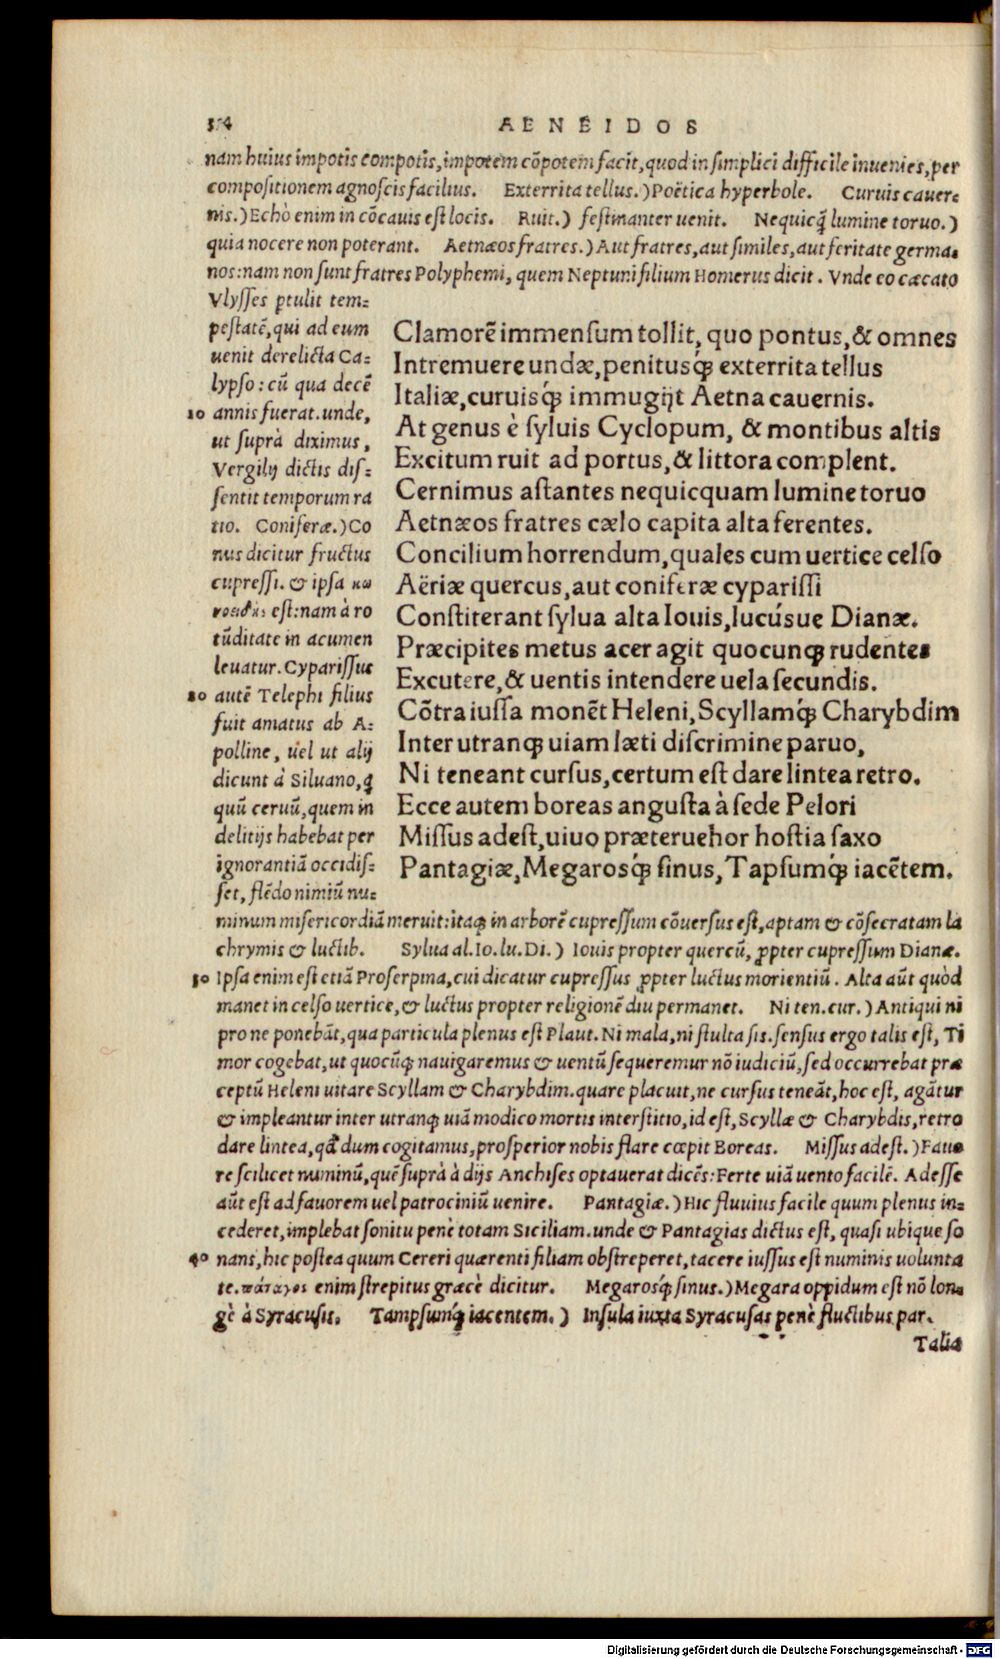 AENEIDOS
nam huius impotis compotis, impotem cõpotem facit, quod in simplici difficile inuenies, per
compositionem agnoscis facilius. Exterrita tellus.) Poëtica hyperbole. Curuis cauer-
nis.) Echò enim in cõcauis est locis. Ruit.) festinanter uenit. Nequicq̃ lumine toruo.)
quia nocere non poterant. Aetnæos fratres.) Aut fratres, aut similes, aut feritate germa-
nos: nam non sunt fratres Polyphemi, quem Neptuni filium Homerus dicit. Vnde eo cæcato
Vlysses ptulit tem-
pestatẽ, qui ad eum
uenit derelicta Ca-
lypso: cũ qua decẽ
10 annis fuerat. unde,
ut suprà diximus,
Vergilij dictis dis-
sentit temporum ra
tio. Coniferæ.) Co
nus dicitur fructus
cupressi. & ipsa κω
νοειδής est: nam à ro
tũditate in acumen
leuatur. Cyparissus
20 autẽ Telephi filius
fuit amatus ab A-
polline, uel ut alij
dicunt à Siluano, q
quũ ceruũ, quem in
delitijs habebat per
ignorantiã occidis-
set, flẽdo nimiũ nu-
Clamorẽ immensum tollit, quo pontus, & omnes
Intremuere undæ, penitusq́; exterrita tellus
Italiæ, curuisq́; immugijt Aetna cauernis.
At genus è syluis Cyclopum, & montibus altis
Excitum ruit ad portus, & littora complent.
Cernimus astantes nequicquam lumine toruo
Aetnæos fratres cælo capita alta ferentes.
Concilium horrendum, quales cum uertice celso
Aëriæ quercus, aut coniferæ cyparissi
Constiterant sylua alta Iouis, lucúsue Dianæ.
Præcipites metus acer agit quocunq; rudentes
Excutere, & uentis intendere uela secundis.
Cõtra iussa monẽt Heleni, Scyllamq́; Charybdim
Inter utranq; uiam læti discrimine paruo,
Ni teneant cursus, certum est dare lintea retro.
Ecce autem boreas angusta à sede Pelori
Missus adest, uiuo præteruehor hostia saxo
Pantagiæ, Megarosq́; sinus, Tapsumq́; iacẽtem.
minum misericordiã meruit: itaq; in arborẽ cupressum cõuersus est, aptam & cõsecratam la
chrymis & luctib. Sylua al. Io. lu. Di.) Iouis propter quercũ, ꝓpter cupressum Dianæ.
30 Ipsa enim est etiã Proserpina, cui dicatur cupressus ꝓpter luctus morientiũ. Alta aũt quòd
manet in celso uertice, & luctus propter religionẽ diu permanet. Ni ten. cur.) Antiqui ni
pro ne ponebãt, qua particula plenus est Plaut. Ni mala, ni stulta sis. sensus ergo talis est, Ti
mor cogebat, ut quocũq; nauigaremus & uentũ sequeremur nõ iudiciũ, sed occurrebat præ
ceptũ Heleni uitare Scyllam & Charybdim. quare placuit, ne cursus teneãt, hoc est, agãtur
& impleantur inter utranq; uiã modico mortis interstitio, id est, Scyllæ & Charybdis, retro
dare lintea, qd̃ dum cogitamus, prosperior nobis flare cœpit Boreas. Missus adest.) Fauo
re scilicet numinũ, quẽ suprà à dijs Anchises optauerat dicẽs: Ferte uiã uento facilẽ. Adesse
aũt est ad fauorem uel patrociniũ uenire. Pantagiæ.) Hic fluuius facile quum plenus in-
cederet, implebat sonitu penè totam Siciliam. unde & Pantagias dictus est, quasi ubique so
40 nans, hic postea quum Cereri quærenti filiam obstreperet, tacere iussus est numinis uolunta
te. πάταγος enim strepitus græcè dicitur. Megarosq́; sinus.) Megara oppidum est nõ lon-
gè à Syracusis. Tampsumq́; iacentem.) Insula iuxta Syracusas penè fluctibus par.
Talia
Digitalisierung gefördert durch die Deutsche Forschungsgemeinschaft - DFG